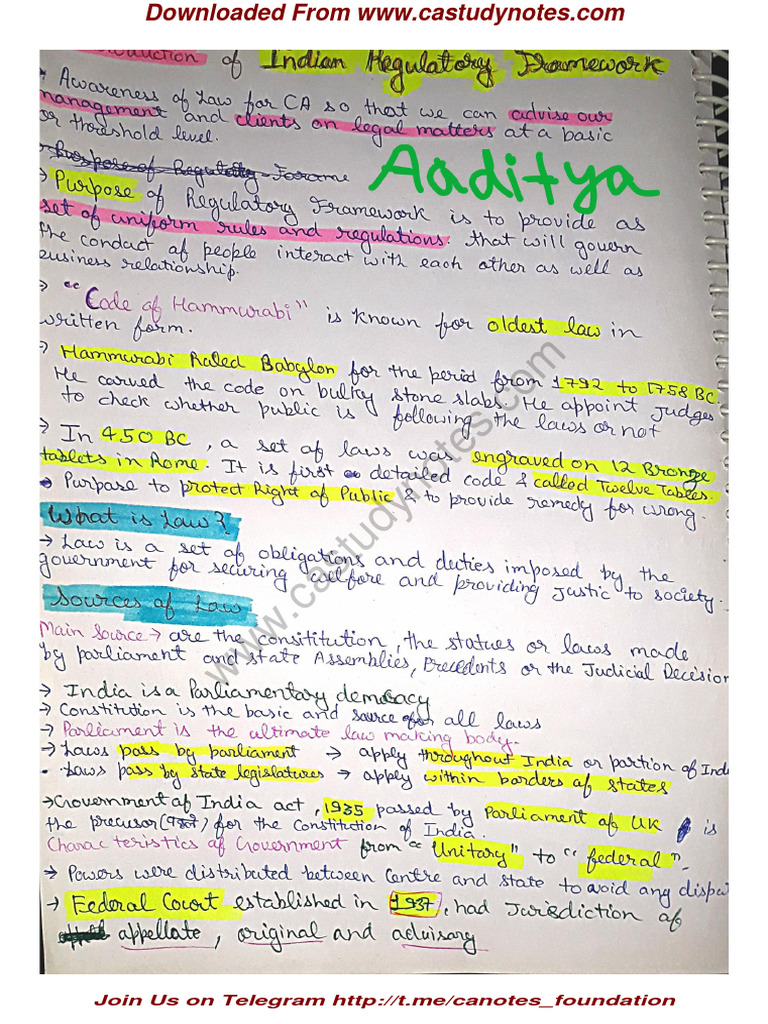 Downloaded From www.castudynotes.com
of Indian Regulatory Framework
* Awareness of Law for CA so that we can advise our
management and clients on legal matters at a basic
or threshold level.
Purpose of Regulatory Forame
Aaditya
→ Purpose of Regulatory Framework is to provide as
set of uniform rules and regulations. that will govern
the conduct of people interact with each other as well as
business relationship.
→ "Code of Hammurabi" is known for oldest law in
written form.
→ Hammurabi Ruled Babylon for the period from 1792 to 1758 BC.
He carved the code on bulky stone slabs. He appoint judges
to check whether public is following the laws or not
→ In 450 BC, a set of laws was engraved on 12 Bronze
tablets in Rome. It is first detailed code & called Twelve Tables.
→ Purpase to protect Right of Public & to provide remedy for wrong.
What is Law?
→ Law is a set of obligations and duties imposed by the
government for securing welfore and providing Justic to society.
Sources of Law
Main source → are the consititution, the statues or laws made
by parliament and state Assemblies, Precedents or the Judicial Decision
→ India is a Parliamentary democacy
→ Constitution is the basic and source of all laws
→ Parliament is the ultimate law making body.
→ Laws pass by parliament → apply throughout India or partion of Ind
• Laws pass by state legislatures → apply within borders of states
→ Government of India act, 1935 passed by Parliament of UK is
the precusor () for the Constitution of India.
Characteristics of Government from "Unitary" to "federal".
→ Powers were distributed between Centre and state to avoid any disput
→ Federal Court established in 1937, had Jurisdiction of
appellate, original and advisary
www.castudynotes.com
Join Us on Telegram http://t.me/canotes_foundation